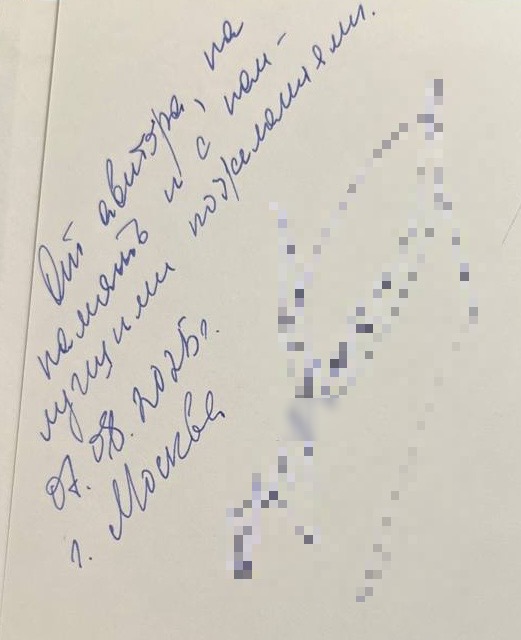 От автора, на
память и с наи-
лучшими пожеланиями.
07.08.2025г.
г. Москва